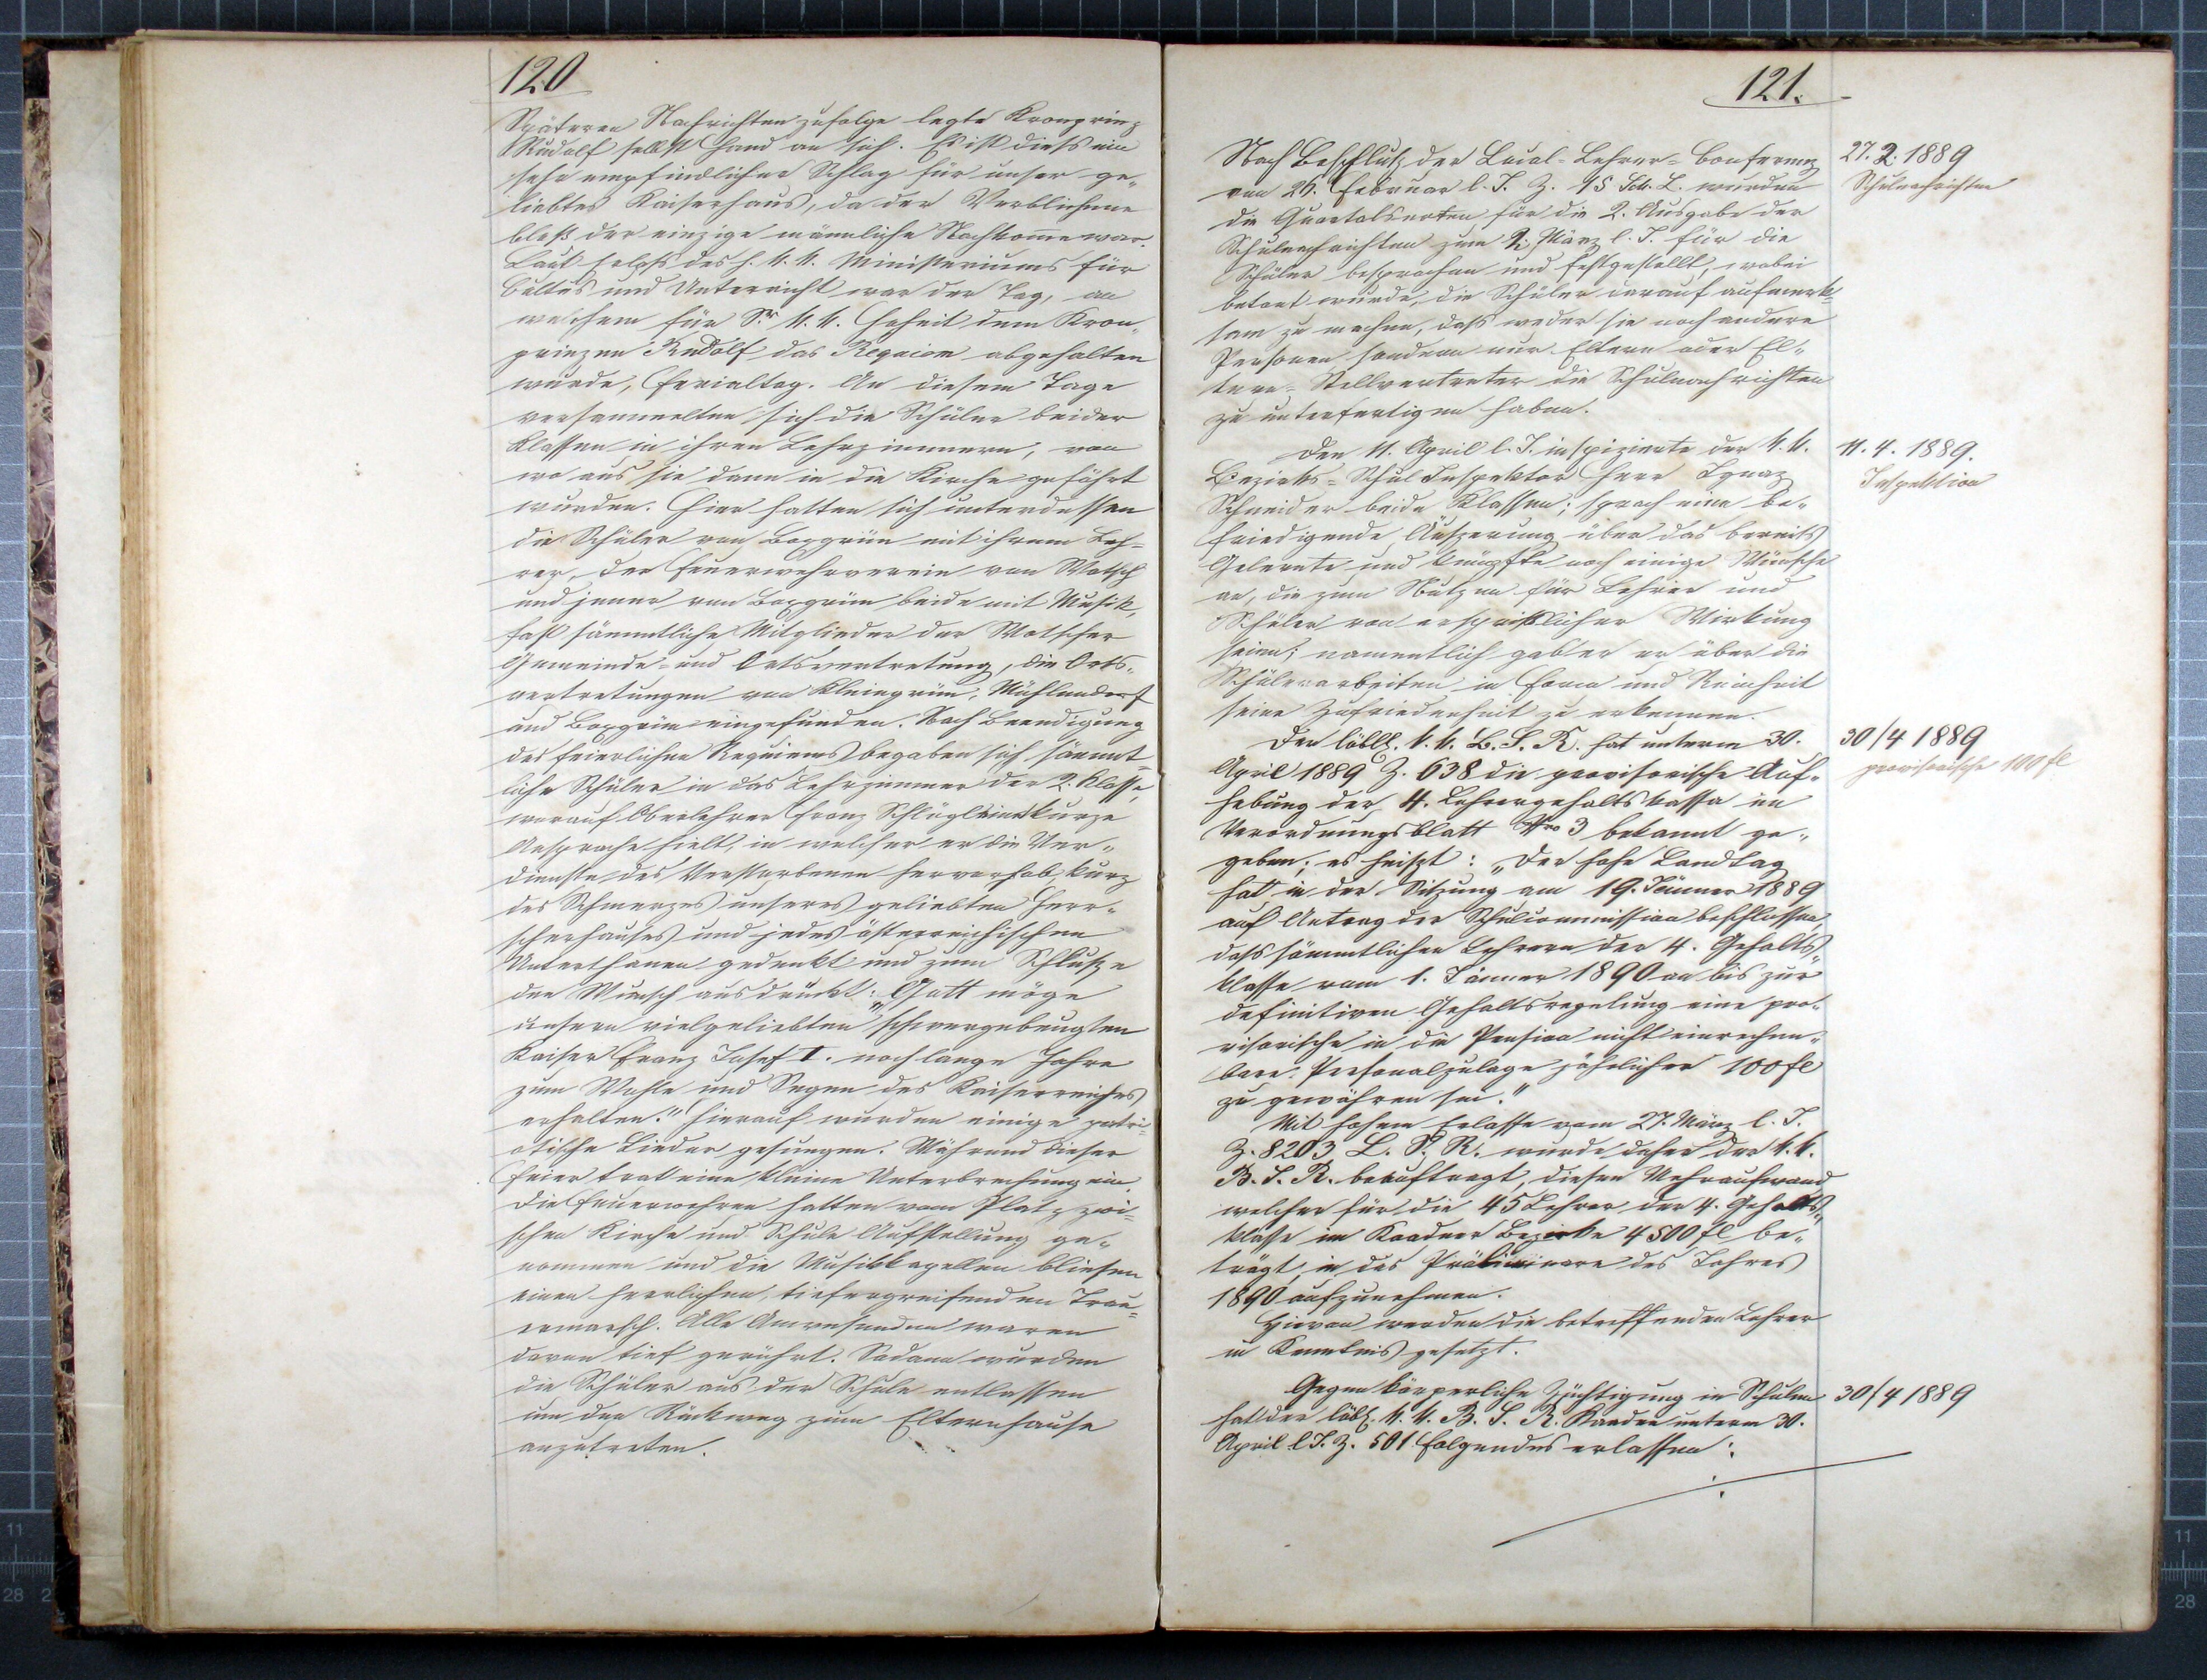 120
Späteren Nachrichten zufolge legte Kronprinz
Rudolf selbst Hand an sich. Es ist dieß ein
sehr empfindlicher Schlag für unser ge-
liebtes Kaiserhaus, da der Verblichene
bloß der einzige männliche Nachkomme war.
Laut Erlaß des h. k. k. Ministeriums für
Cultus und Unterricht war der Tag, an
welchem für Sr. k. k. Hoheit dem Kron-
prinzen Rudolf das Requiem abgehalten
wurde, Ferialtag. An diesem Tage
versammelten sich die Schüler beider
Klassen in ihren Lehrzimmern, von
wo aus sie dann in die Kirche geführt
wurden. Hier hatten sich unterdessen
die Schüler von Boxgrün mit ihrem Leh-
rer, der Feuerwehrverein von Wotsch
und jener von Boxgrün beide mit Musik,
fast sämmtliche Mitglieder der Wotscher
Gemeinde- und Ortsvertretung, die Orts-
vertretungen von Kleingrün, Mühlendorf
und Boxgrün eingefunden. Nach Beendigung
des feierlichen Requiems begaben sich sämmt-
liche Schüler in das Lehrzimmer der 2. Klasse,
worauf Oberlehrer Franz Schlögl eine kurze
Ansprache hielt, in welcher er die Ver-
dienste des Verstorbenen hervorhob, kurz
des Schmerzes unseres geliebten Herr-
scherhauses und jedes österreichischen
Unterthanen gedenkt und zum Schluße
den Wunsch ausdrückt: „Gott möge
unsern vielgeliebten schwergebeugten
Kaiser Franz Josef I. noch lange Jahre
zum Wohle und Segen des Kaiserreiches
erhalten." Hierauf wurden einige patri-
otische Lieder gesungen. Während dieser
Feier trat eine kleine Unterbrechung ein.
Die Feuerwehren hatten vom Platz zwi-
schen Kirche und Schule Aufstellung ge-
nommen und die Musikkapellen bliesen
einen herrlichen, tiefergreifenden Trau-
ermarsch. Alle Anwesenden waren
davon tief gerührt. Sodann wurden
die Schüler aus der Schule entlassen
um den Rückweg zum Elternhause
anzutreten.
121.
Nach Beschluß der Local-Lehrer-Conferenz
vom 26. Februar l. J. Z. 15 Sch. L. wurden
die Quartalsnoten für die 2. Ausgabe der
Schulnachrichten zum 2. März l. J. für die
Schüler besprochen und festgestellt, wobei
betont wurde, die Schüler darauf aufmerk-
sam zu machen, daß weder sie noch andere
Personen sondern nur Eltern oder El-
tern-Stellvertreter die Schulnachrichten
zu unterfertigen haben.
27. 2. 1889
Schulnachrichten
Den 11. April l. J. inspizierte der k. k.
Bezirks-Schul Inspektor Herr Ignaz
Schneider beide Klassen; sprach eine be-
friedigende Äußerung über das bereits
Gelernte und knüpfte noch einige Wünsche
an, die zum Nutzen für Lehrer und
Schüler von ersprießlicher Wirkung
seien; namentlich gab er über die
Schülerarbeiten in Form und Reinheit
seine Zufriedenheit zu erkennen.
11. 4. 1889.
Inspektion
Der löbl. k. k. B. S. R. hat unterm 30.
April 1889 Z. 638 die provisorische Auf-
hebung der 4. Lehrergehaltsklasse im
Verordnungsblatt Nro 3 bekannt ge-
geben; es heißt: „Der hohe Landtag
hat in der Sitzung am 19. Jänner 1889
auf Antrag der Schulcommission beschlossen,
daß sämmtlichen Lehrern der 4. Gehalts-
klasse vom 1. Jänner 1890 an bis zur
definitiven Gehaltsregelung eine pro-
visorische in die Pension nicht einrechen-
bare Personalzulage jährlicher 100 fl
zu gewähren sei."
30/4 1889
provisorische 100 fl
Mit hohem Erlasse vom 27. März l. J.
Z. 8203 L. S. R. wurde daher der k. k.
B. S. R. beauftragt, diesen Mehraufwand
welcher für die 45 Lehrer der 4. Gehalts-
klasse im Kaadner Bezirke 4500 fl be-
trägt, in das Präliminare des Jahres
1890 aufzunehmen.
Hievon werden die betreffenden Lehrer
in Kenntnis gesetzt.
Gegen körperliche Züchtigung in Schulen
hat der löbl. k. k. B. S. R. Kaaden unterm 30.
April l. J. Z. 501 folgendes erlassen:
30/4 1889